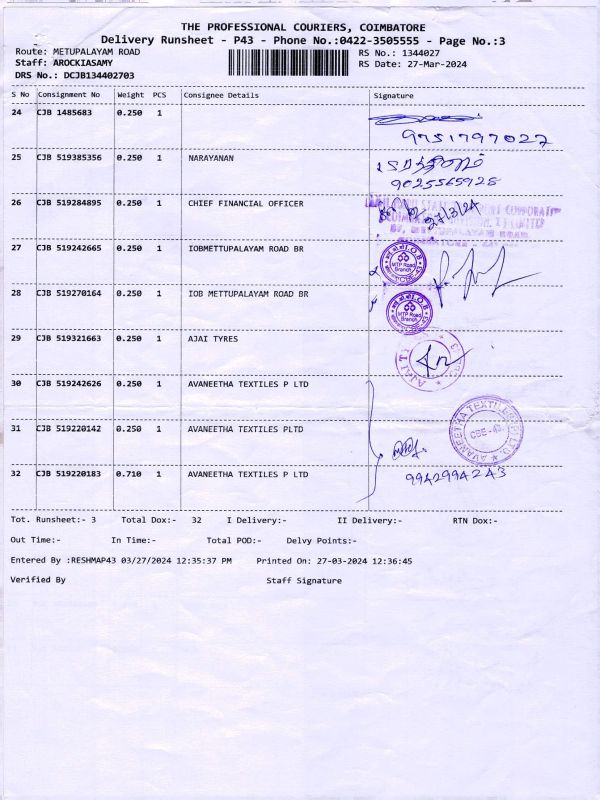 THE PROFESSIONAL COURIERS, COIMBATORE
Delivery Runsheet - P43 - Phone No.:0422-3505555 - Page No.:3
Route: METUPALAYAM ROAD RS No.: 1344027
Staff: AROCKIASAMY RS Date: 27-Mar-2024
DRS No.: DCJB134402703
S No Consignment No Weight PCS Consignee Details Signature
24 CJB 1485683 0.250 1
9751797027
25 CJB 519385356 0.250 1 NARAYANAN
9025565928
26 CJB 519284895 0.250 1 CHIEF FINANCIAL OFFICER
27/3/24
27 CJB 519242665 0.250 1 IOBMETTUPALAYAM ROAD BR
I.O.B MTP Road Branch CBE
28 CJB 519270164 0.250 1 IOB METTUPALAYAM ROAD BR
I.O.B MTP Road Branch
29 CJB 519321663 0.250 1 AJAI TYRES
AJAI
30 CJB 519242626 0.250 1 AVANEETHA TEXTILES P LTD
31 CJB 519220142 0.250 1 AVANEETHA TEXTILES PLTD
AVANEETHA TEXTILES P LTD. CBE-43.
32 CJB 519220183 0.710 1 AVANEETHA TEXTILES P LTD
9942994243
Tot. Runsheet:- 3 Total Dox:- 32 I Delivery:- II Delivery:- RTN Dox:-
Out Time:- In Time:- Total POD:- Delvy Points:-
Entered By :RESHMAP43 03/27/2024 12:35:37 PM Printed On: 27-03-2024 12:36:45
Verified By Staff Signature